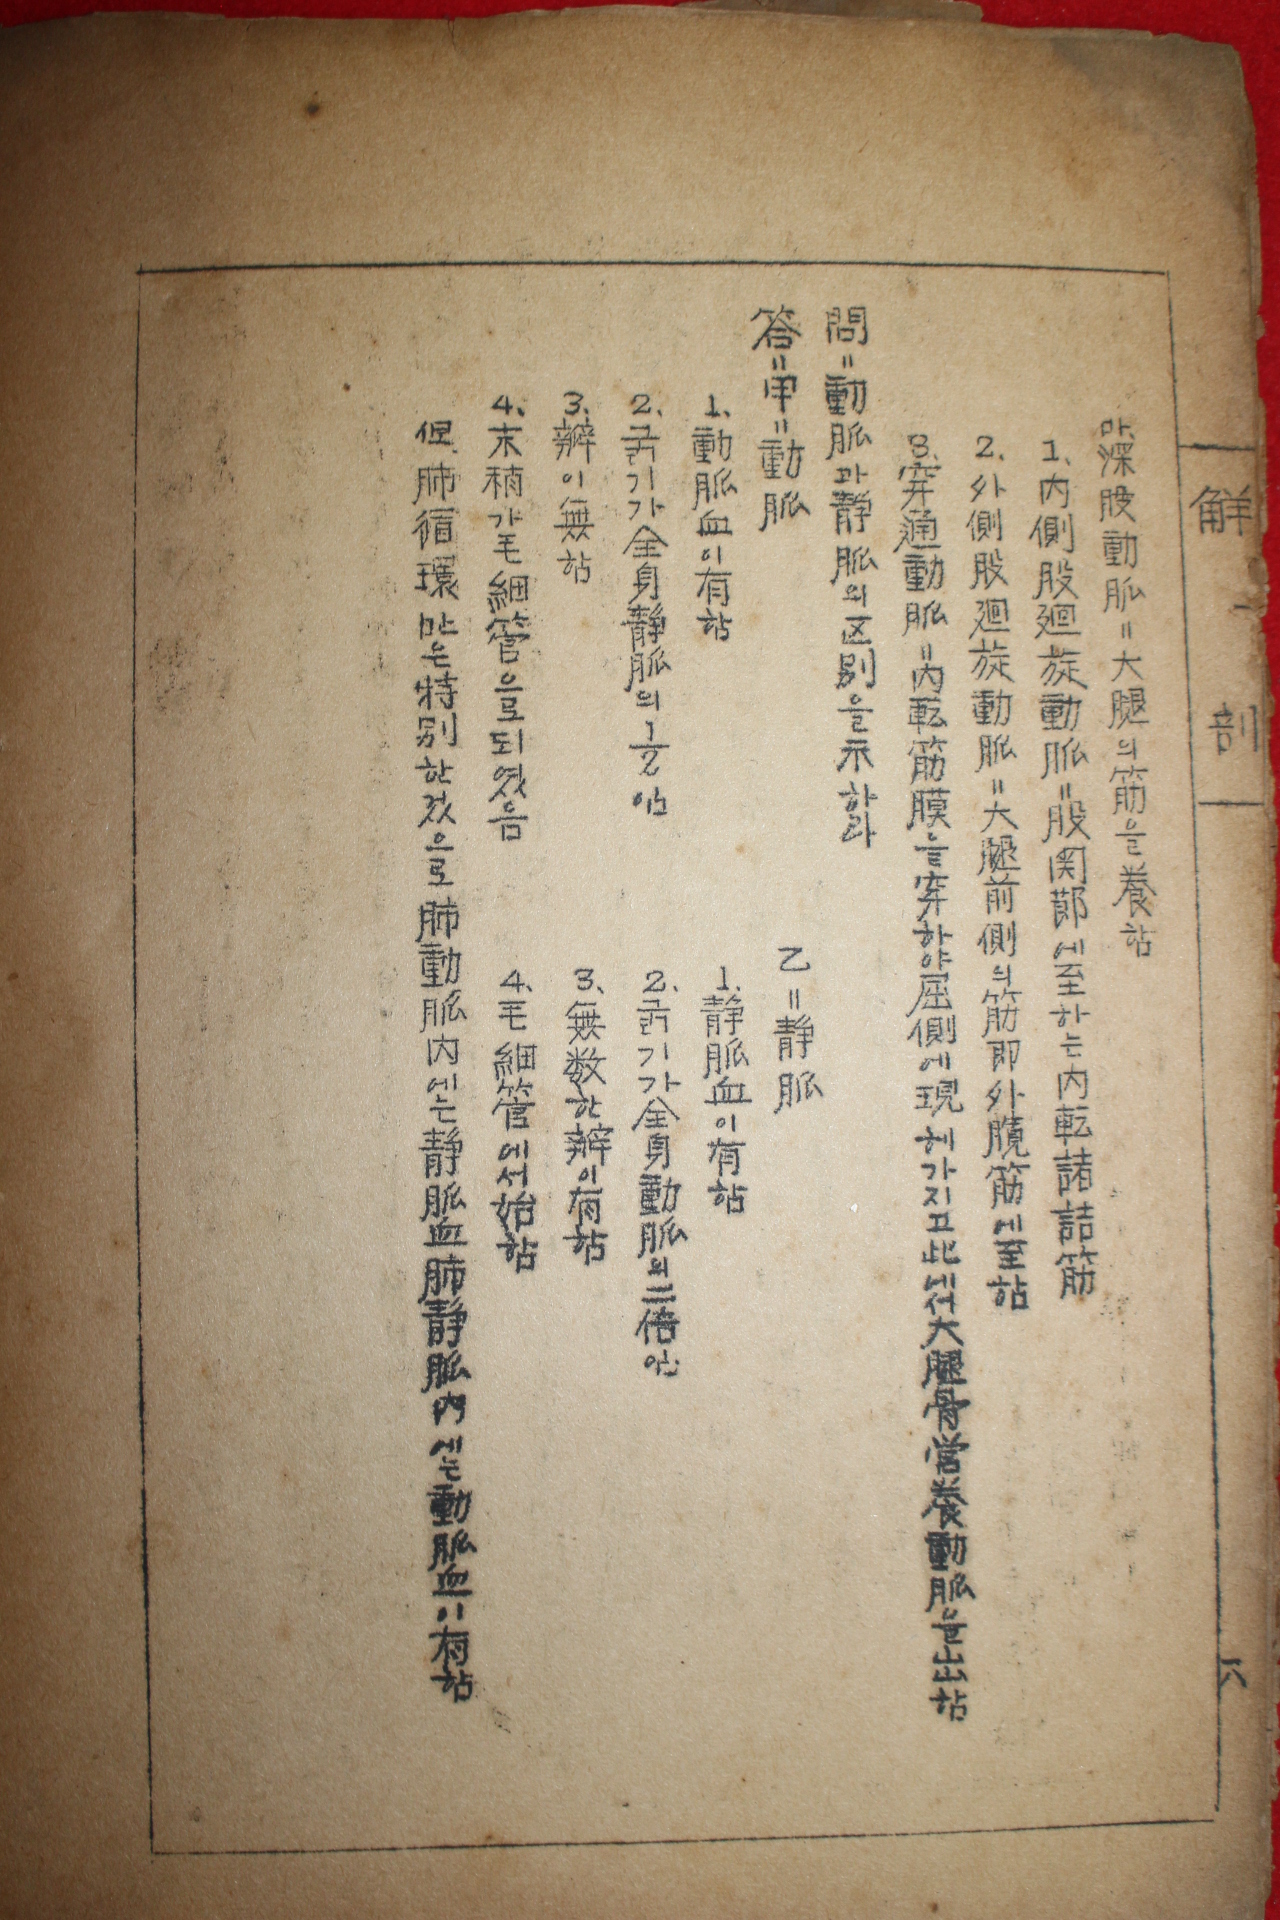 解剖
六
마.深股動脈=大腿의筋을養함
1.內側股廻旋動脈=股関節에至하는內転諸詰筋
2.外側股廻旋動脈=大腿前側의筋即外臗筋에至함
3.穿通動脈=內転筋膜을穿하야屈側에現헤가지고此에서大腿骨営養動脈을出함
問=動脈과静脈의区別을示하라
答=甲=動脈
1.動脈血이有함
2.굵기가全身静脈의1/2임
3.瓣이無함
4.末梢가毛細管으로되엿음
乙=静脈
1.静脈血이有함
2.굵기가全身動脈의二倍임
3.無数한瓣이有함
4.毛細管에서始함
但.肺循環만은特別한것으로肺動脈內에는静脈血肺静脈內에는動脈血이有함